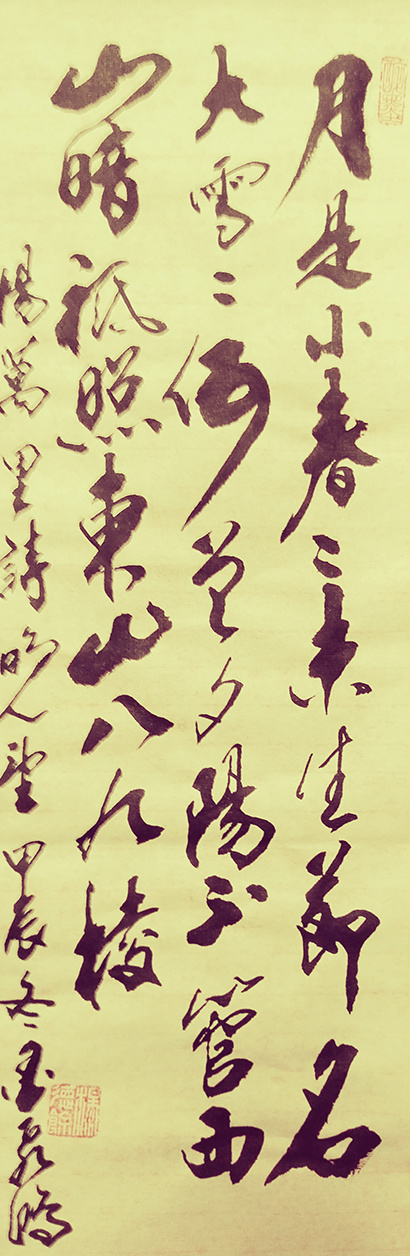 月是小春〻未生節名
大雪〻何曾夕陽不管西
山暗祇照東山八九棱
楊萬里詩晚望 甲辰冬